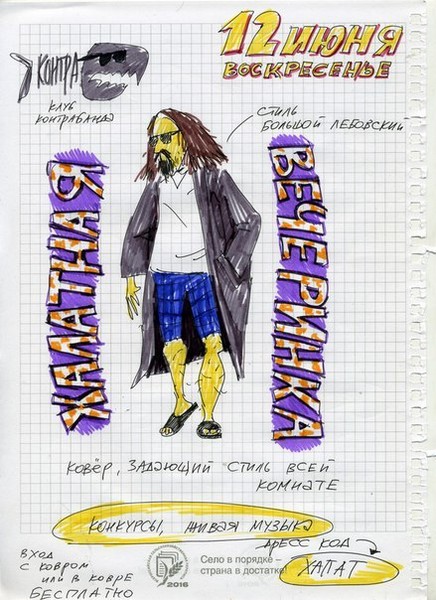 12 ИЮНЯ
ВОСКРЕСЕНЬЕ
КОНТРА
КЛУБ
КОНТРАБАНДА
СТИЛЬ
БОЛЬШОЙ ЛЕБОВСКИЙ
ХАЛАТНАЯ
ВЕЧЕРИНКА
КОВЁР, ЗАДАЮЩИЙ СТИЛЬ ВСЕЙ
КОМНАТЕ
КОНКУРСЫ, ЖИВАЯ МУЗЫКА
ДРЕСС КОД
ХАЛАТ
ВХОД
С КОВРОМ
ИЛИ В КОВРЕ
БЕСПЛАТНО
2016
Село в порядке –
страна в достатке!